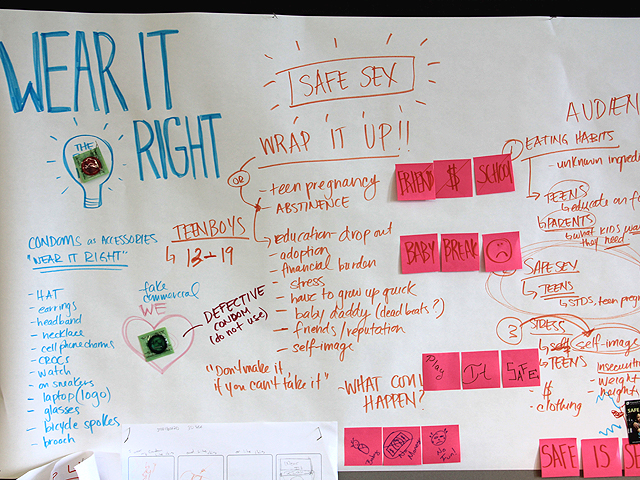 WEAR IT
THE RIGHT
CONDOMS as ACCESSORIES
"WEAR IT RIGHT"
- HAT
- earrings
- headband
- necklace
- cell phone charms
- CROCS
- watch
- on sneakers
- laptop (logo)
- glasses
- bicycle spokes
- broach
TEEN BOYS
↳ 13-19
fake commercial
WE
DEFECTIVE
CONDOM
(do not use)
"Don't make it,
if you can't take it"
SAFE SEX
WRAP IT UP!!
OR
- teen pregnancy
- ABSTINENCE
education - drop out
- adoption
- financial burden
- stress
- have to grow up quick
- baby daddy (dead beats?)
- friends/reputation
- self-image
- WHAT
HAPPEN?
FRIEND $ SCHOOL
BABY BREAK
Play It SAFE
SAFE IS
AUDIEN
1 EATING HABITS
- unknown ingredi
↳ TEENS
↳ educate on fo
↳ PARENTS
↳ what KIDS wa
they need
SAFE SEX
↳ TEENS
↳ STDS, teen preg
3 STRESS
↳ self-image
↳ TEENS
- $
- clothing
insecurit
- weight
- height